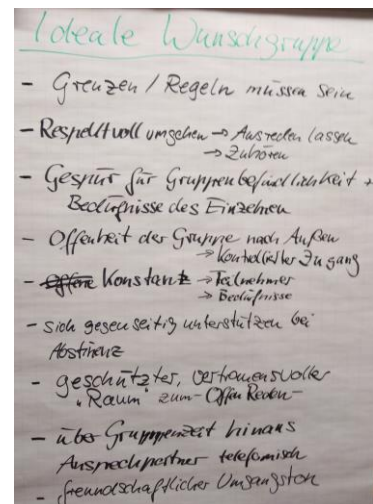 Ideale Wunschgruppe
- Grenzen / Regeln müssen sein
- Respektvoll umgehen → Ausreden lassen
→ Zuhören
- Gespür für Gruppenbefindlichkeit +
Bedürfnisse des Einzelnen
- Offenheit der Gruppe nach Außen
→ Kontrollierter Zugang
- offene Konstanz → Teilnehmer
→ Bedürfnisse
- sich gegenseitig unterstützen bei
Abstinenz
- geschützter, vertrauensvoller
"Raum" zum - Offen Reden -
- über Gruppenzeit hinaus
Ansprechpartner telefonisch
- freundschaftlicher Umgangston